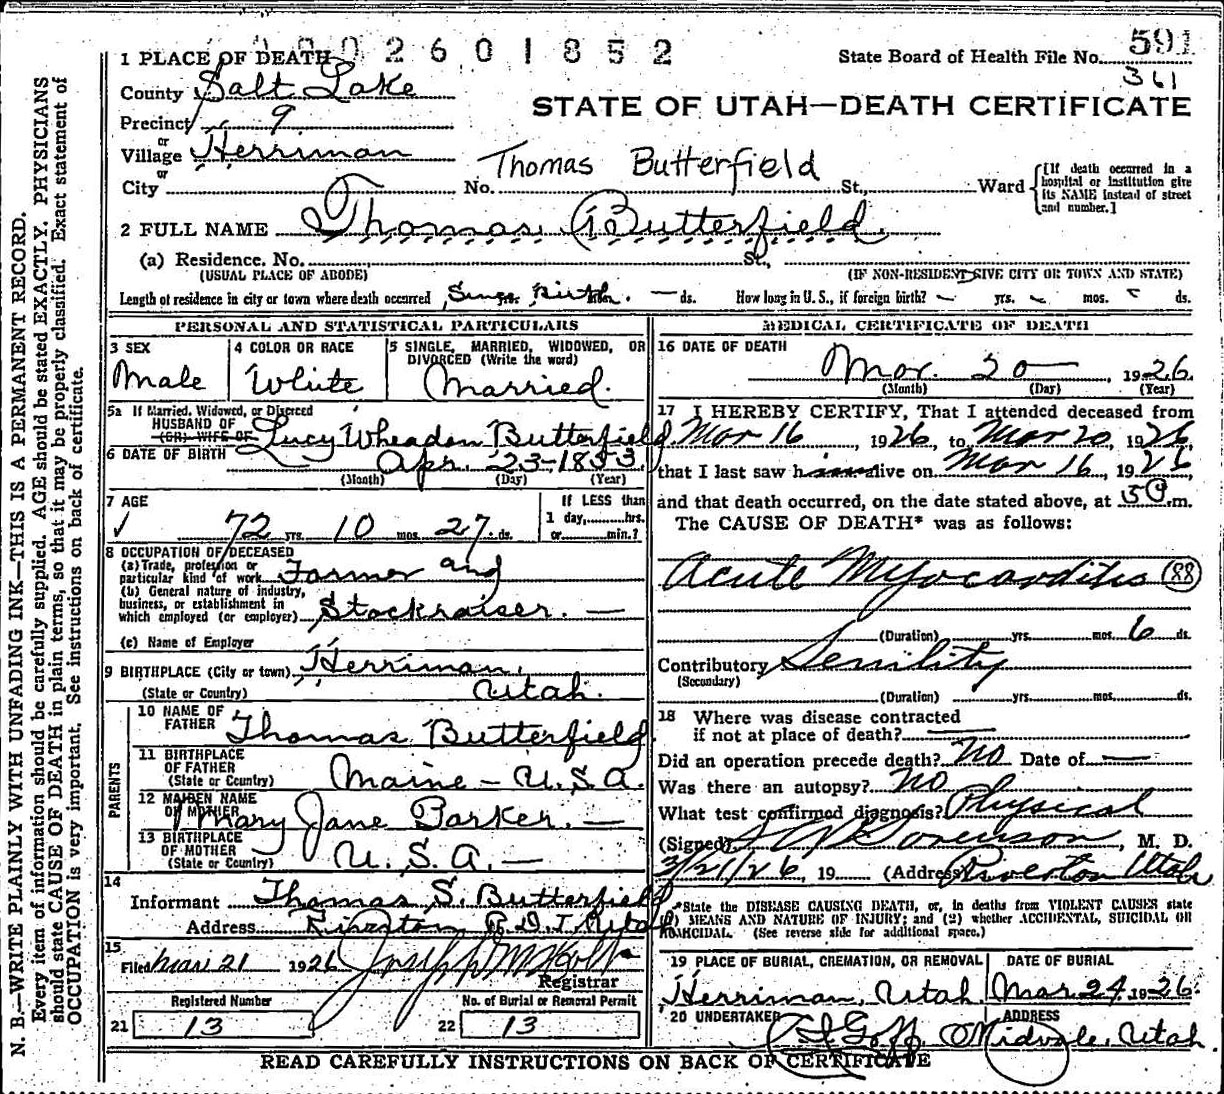 2601852
1 PLACE OF DEATH
State Board of Health File No. 591
361
County Salt Lake
STATE OF UTAH—DEATH CERTIFICATE
Precinct 9
or
Village Herriman
or
Thomas Butterfield
City No. St., Ward
[If death occurred in a hospital or institution give its NAME instead of street and number.]
2 FULL NAME Thomas Butterfield
(a) Residence. No. St.,
(USUAL PLACE OF ABODE) (IF NON-RESIDENT GIVE CITY OR TOWN AND STATE)
Length of residence in city or town where death occurred Since Birth. — ds. How long in U. S., if foreign birth? — yrs. mos. ds.
PERSONAL AND STATISTICAL PARTICULARS
3 SEX
Male
4 COLOR OR RACE
White
5 SINGLE, MARRIED, WIDOWED, OR DIVORCED (Write the word)
Married.
5a If Married, Widowed, or Divorced
HUSBAND OF
(OR) WIFE OF Lucy Wheadon Butterfield
6 DATE OF BIRTH Apr. 23-1853
(Month) (Day) (Year)
7 AGE
72 yrs. 10 mos. 27 ds.
If LESS than
1 day, hrs.
or min.?
8 OCCUPATION OF DECEASED
(a) Trade, profession or
particular kind of work Farmer and
(b) General nature of industry,
business, or establishment in
which employed (or employer) Stockraiser. —
(c) Name of Employer
9 BIRTHPLACE (City or town) Herriman,
(State or Country) Utah.
PARENTS
10 NAME OF
FATHER Thomas Butterfield
11 BIRTHPLACE
OF FATHER
(State or Country) Maine – U.S.A.
12 MAIDEN NAME
OF MOTHER Mary Jane Parker. —
13 BIRTHPLACE
OF MOTHER
(State or Country) U. S. A. —
14
Informant Thomas S. Butterfield
Address Riverton R.D.1. Utah
15
Filed Mar 21 1926
Registrar
Registered Number
21 13
No. of Burial or Removal Permit
22 13
MEDICAL CERTIFICATE OF DEATH
16 DATE OF DEATH
Mar. 20 — , 1926
(Month) (Day) (Year)
17 I HEREBY CERTIFY, That I attended deceased from
Mar 16, 1926, to Mar 20, 1926
that I last saw him alive on Mar 16, 1926
and that death occurred, on the date stated above, at 5 P.m.
The CAUSE OF DEATH* was as follows:
Acute Myocarditis 88
(Duration) yrs. mos. 6 ds.
Contributory Senility
(Secondary)
(Duration) yrs. mos. ds.
18 Where was disease contracted
if not at place of death? —
Did an operation precede death? No Date of —
Was there an autopsy? No
What test confirmed diagnosis? Physical
(Signed) Sorenson, M. D.
3/21/26, 19 (Address) Riverton Utah
*State the DISEASE CAUSING DEATH, or, in deaths from VIOLENT CAUSES state
(1) MEANS AND NATURE OF INJURY; and (2) whether ACCIDENTAL, SUICIDAL OR
HOMICIDAL. (See reverse side for additional space.)
19 PLACE OF BURIAL, CREMATION, OR REMOVAL
Herriman, Utah
DATE OF BURIAL
Mar 24, 1926.
20 UNDERTAKER
Goff,
ADDRESS
Midvale, Utah.
READ CAREFULLY INSTRUCTIONS ON BACK OF CERTIFICATE
N. B.—WRITE PLAINLY WITH UNFADING INK—THIS IS A PERMANENT RECORD.
Every item of information should be carefully supplied. AGE should be stated EXACTLY. PHYSICIANS
should state CAUSE OF DEATH in plain terms, so that it may be properly classified. Exact statement of
OCCUPATION is very important. See instructions on back of certificate.